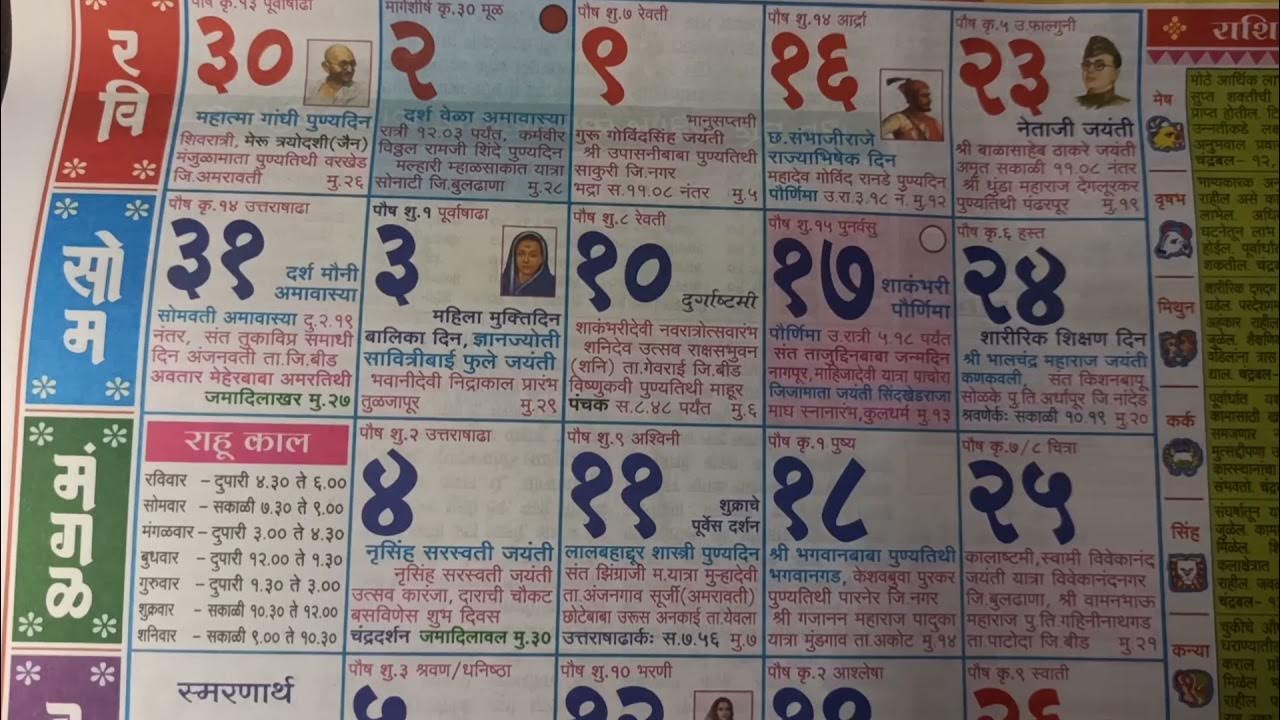 रवि
पौष कृ.१३ पूर्वाषाढा
३०
महात्मा गांधी पुण्यदिन
शिवरात्री, मेरू त्रयोदशी(जैन)
मंजुळामाता पुण्यतिथी वरखेड
जि.अमरावती मु.२६
मार्गशीर्ष कृ.३० मूळ
२
दर्श वेळा अमावास्या
रात्री १२.०३ पर्यंत, कर्मवीर
विठ्ठल रामजी शिंदे पुण्यदिन
मल्हारी म्हाळसाकांत यात्रा
सोनाटी जि.बुलढाणा मु.२८
पौष शु.७ रेवती
९
भानुसप्तमी
गुरू गोविंदसिंह जयंती
श्री उपासनीबाबा पुण्यतिथी
साकुरी जि.नगर
भद्रा स.११.०८ नंतर मु.५
पौष शु.१४ आर्द्रा
१६
छ.संभाजीराजे
राज्याभिषेक दिन
महादेव गोविंद रानडे पुण्यदिन
पौर्णिमा उ.रा.३.१८ न. मु.१२
पौष कृ.५ उ.फाल्गुनी
२३
नेताजी जयंती
श्री बाळासाहेब ठाकरे जयंती
अमृत सकाळी ११.०८ नंतर
श्री धुंडा महाराज देगलूरकर
पुण्यतिथी पंढरपूर मु.१९
सोम
पौष कृ.१४ उत्तराषाढा
३१
दर्श मौनी
अमावास्या
सोमवती अमावास्या दु.२.१९
नंतर, संत तुकाविप्र समाधी
दिन अंजनवती ता.जि.बीड
अवतार मेहेरबाबा अमरतिथी
जमादिलाखर मु.२७
पौष शु.१ पूर्वाषाढा
३
महिला मुक्तिदिन
बालिका दिन, ज्ञानज्योती
सावित्रीबाई फुले जयंती
भवानीदेवी निद्राकाल प्रारंभ
तुळजापूर मु.२९
पौष शु.८ रेवती
१०
दुर्गाष्टमी
शाकंभरीदेवी नवरात्रोत्सवारंभ
शनिदेव उत्सव राक्षसभुवन
(शनि) ता.गेवराई जि.बीड
विष्णुकवी पुण्यतिथी माहूर
पंचक स.८.४८ पर्यंत मु.६
पौष शु.१५ पुनर्वसु
१७
शाकंभरी
पौर्णिमा
पौर्णिमा उ.रात्री ५.१८ पर्यंत
संत ताजुद्दिनबाबा जन्मदिन
नागपूर, माहिजीदेवी यात्रा पाचोरा
जिजामाता जयंती सिंदखेडराजा
माघ स्नानारंभ,कुलधर्म मु.१३
पौष कृ.६ हस्त
२४
शारीरिक शिक्षण दिन
श्री भालचंद्र महाराज जयंती
कणकवली, संत किशनबापू
सोळके पु.ति.अर्धापूर जि नांदेड
श्रवणेर्कः सकाळी १०.१९ मु.२०
मंगळ
राहू काल
रविवार – दुपारी ४.३० ते ६.००
सोमवार – सकाळी ७.३० ते ९.००
मंगळवार – दुपारी ३.०० ते ४.३०
बुधवार – दुपारी १२.०० ते १.३०
गुरुवार – दुपारी १.३० ते ३.००
शुक्रवार – सकाळी १०.३० ते १२.००
शनिवार – सकाळी ९.०० ते १०.३०
पौष शु.२ उत्तराषाढा
४
नृसिंह सरस्वती जयंती
नृसिंह सरस्वती जयंती
उत्सव कारंजा, दाराची चौकट
बसविणेस शुभ दिवस
चंद्रदर्शन जमादिलावल मु.३०
पौष शु.९ अश्विनी
११
शुक्राचे
पूर्वेस दर्शन
लालबहाद्दूर शास्त्री पुण्यदिन
संत झिंग्राजी म.यात्रा मुन्हादेवी
ता.अंजनगाव सूर्जी(अमरावती)
छोटेबाबा उरूस अनकाई ता.येवला
उत्तराषाढार्कः स.७.५६ मु.७
पौष कृ.१ पुष्य
१८
श्री भगवानबाबा पुण्यतिथी
भगवानगड, केशवबुवा पुरकर
पुण्यतिथी पारनेर जि.नगर
श्री गजानन महाराज पादुका
यात्रा मुंडगाव ता.अकोट मु.१४
पौष कृ.७/८ चित्रा
२५
कालाष्टमी,स्वामी विवेकानंद
जयंती यात्रा विवेकानंदनगर
जि.बुलढाणा, श्री वामनभाऊ
महाराज पु.ति.गहिनीनाथगड
ता.पाटोदा जि.बीड मु.२१
स्मरणार्थ
पौष शु.३ श्रवण/धनिष्ठा
५
पौष शु.१० भरणी
१२
पौष कृ.२ आश्लेषा
१९
पौष कृ.९ स्वाती
२६
राशि
मेष
मोठे आर्थिक
सुप्त शक्तीची
प्राप्त होतील.
उन्नतीकडे
अनुभवाल
चंद्रबल- १२,
वृषभ
भाग्यकारक
राहील असे
लाभेल.
घटनेतून लाभ
होईल.
शकतील.
मिथुन
कर्क
पूर्वार्धात
कामासाठी
समजणार
सिंह
कन्या